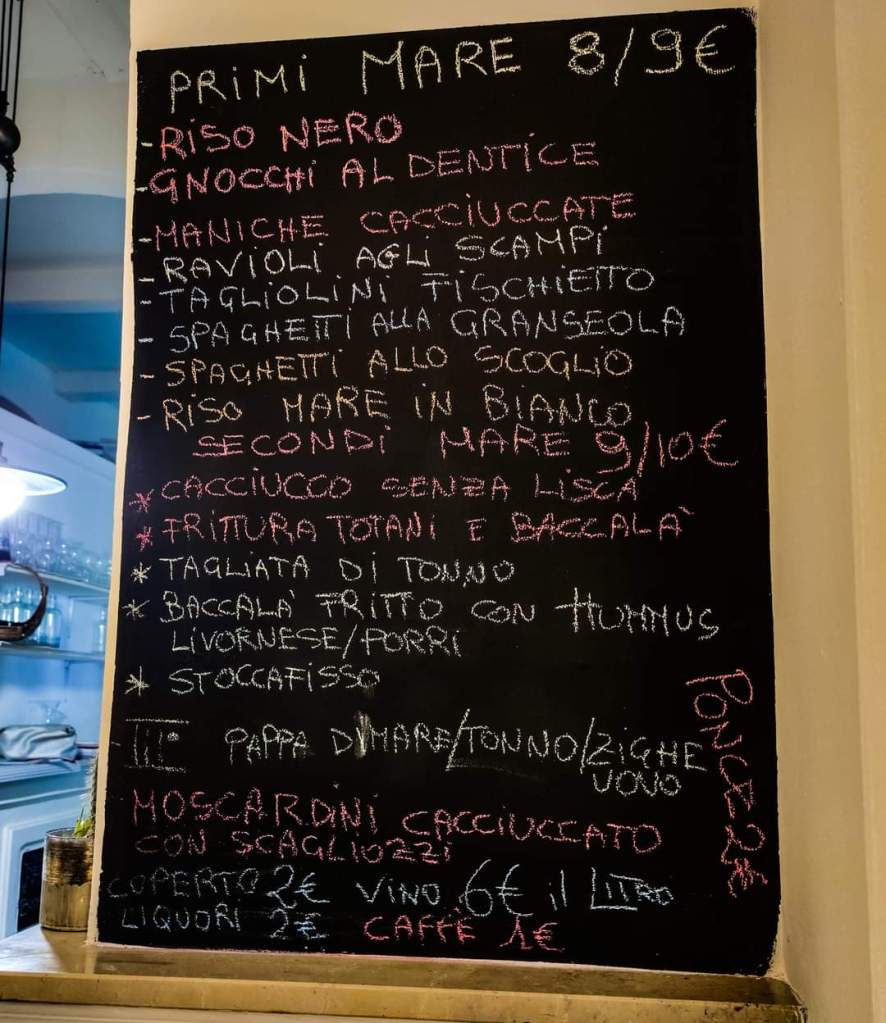 PRIMI MARE 8/9€
-RISO NERO
-GNOCCHI AL DENTICE
-MANICHE CACCIUCCATE
-RAVIOLI AGLI SCAMPI
-TAGLIOLINI FISCHIETTO
-SPAGHETTI ALLA GRANSEOLA
-SPAGHETTI ALLO SCOGLIO
-RISO MARE IN BIANCO
SECONDI MARE 9/10€
*CACCIUCCO SENZA LISCA
*FRITTURA TOTANI E BACCALÀ
*TAGLIATA DI TONNO
*BACCALA' FRITTO CON HUMMUS
LIVORNESE/PORRI
*STOCCAFISSO
-III° PAPPA DI MARE/TONNO/ZIGHE
UOVO
MOSCARDINI CACCIUCCATO
CON SCAGLIOZZI
COPERTO 2€ VINO 6€ il LITRO
LIQUORI 2€ CAFFÈ 1€
PONCE 2€